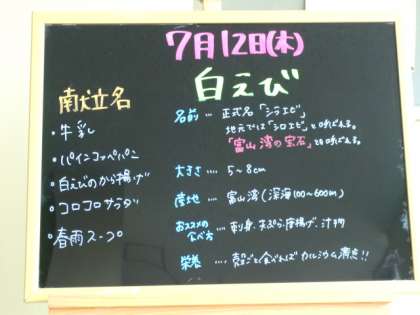 7月12日(木)
白えび
献立名
・牛乳
・パインコッペパン
・白えびのから揚げ
・コロコロサラダ
・春雨スープ
名前… 正式名「シラエビ」
地元では「シロエビ」と呼ばれる。
「富山湾の宝石」とも呼ばれる。
大きさ… 5～8cm
産地… 富山湾(深海100～600m)
おススメの
食べ方…. 刺身、天ぷら、唐揚げ、汁物
栄養…. 殻ごと食べればカルシウム満点!!